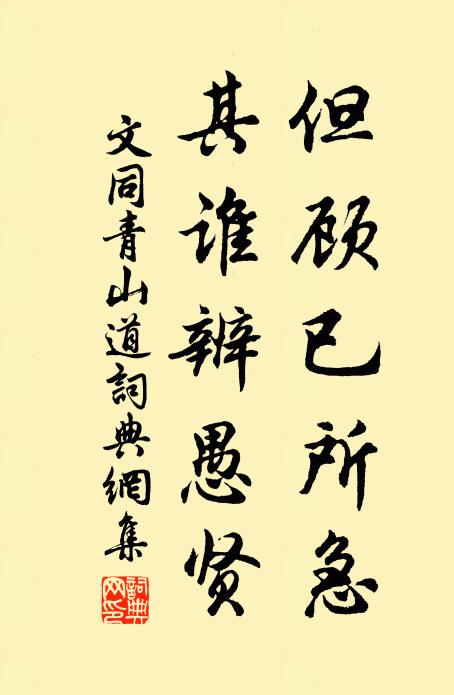 但顾已所急
其谁辨愚贤
文同青山道詞典網集
詞典